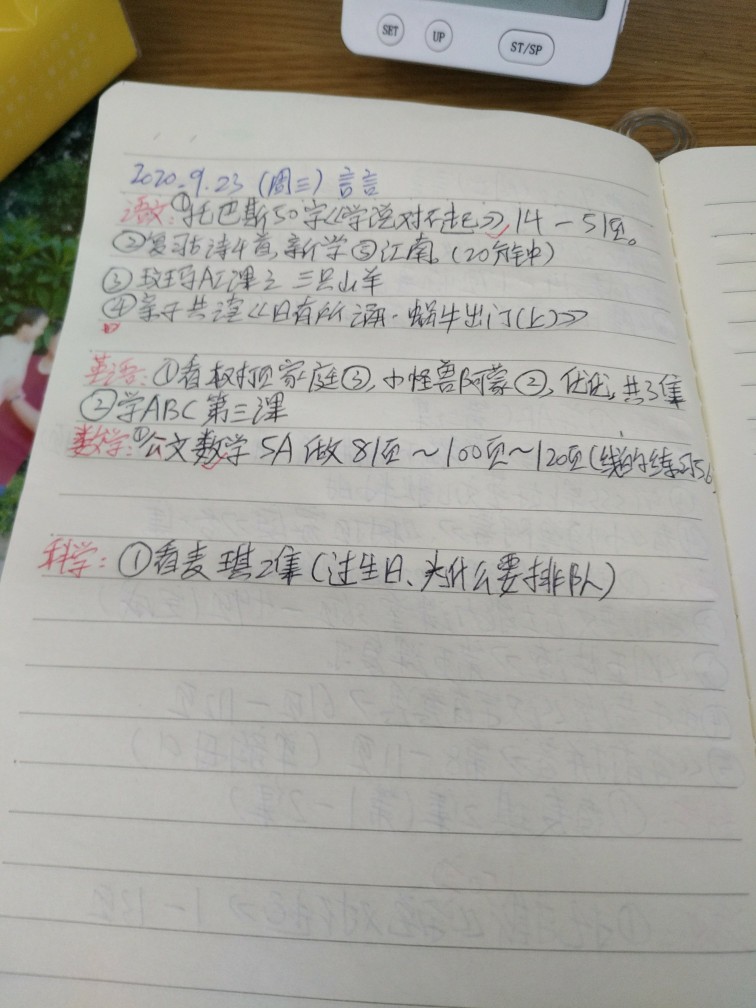 SET UP ST/SP
2020.9.23 (周三) 言言
语文:①托巴斯50字《学说对不起》,14-51页。
②复习古诗4首,新学⑤江南。(20分钟)
③玟玛AI课之 三只山羊
④亲子共读《日有所诵·蜗牛出门(上)》
英语:①看树顶家庭③,小怪兽阿蒙②,优优,共3集
②学ABC第三课
数学:①公文数学 5A 做 81页~100页~120页(线的练习56
科学:①看麦琪2集(过生日、为什么要排队)